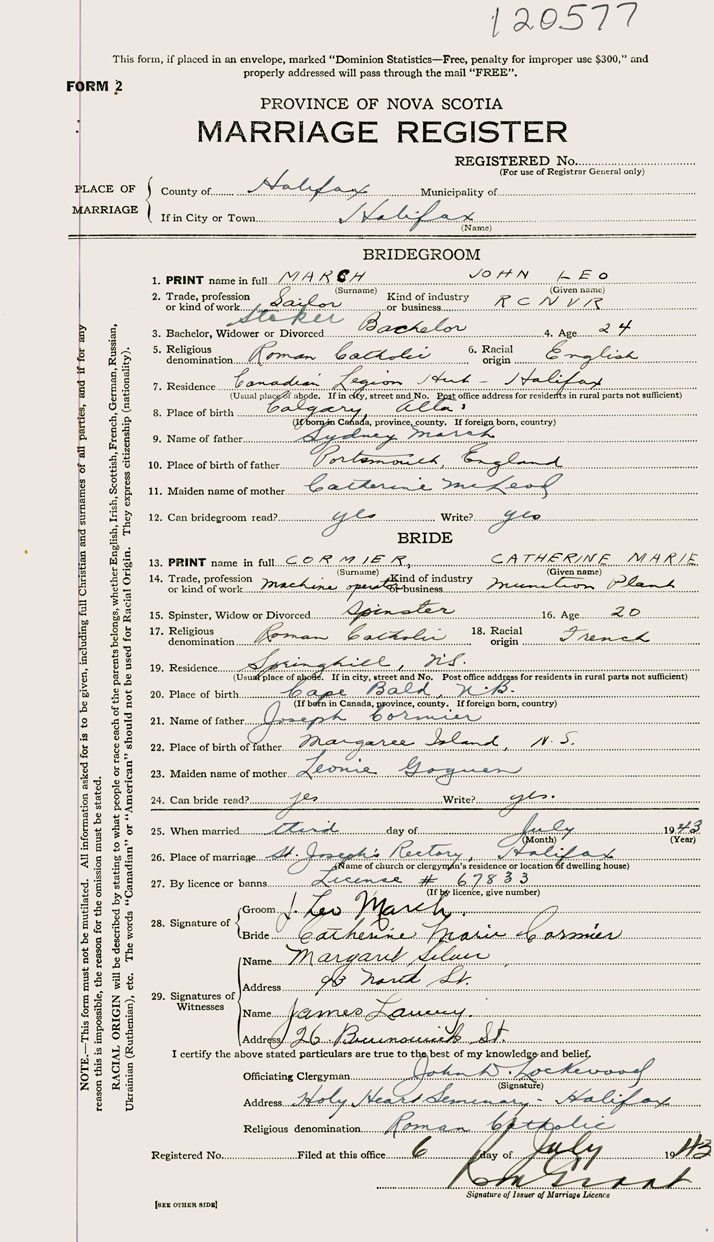 120577
This form, if placed in an envelope, marked "Dominion Statistics—Free, penalty for improper use $300," and
properly addressed will pass through the mail "FREE".
FORM 2
PROVINCE OF NOVA SCOTIA
MARRIAGE REGISTER
REGISTERED No.
(For use of Registrar General only)
PLACE OF MARRIAGE
County of Halifax Municipality of
If in City or Town Halifax
(Name)
BRIDEGROOM
1. PRINT name in full MARCH JOHN LEO
(Surname) (Given name)
2. Trade, profession or kind of work Sailor Stoker Kind of industry or business RCNVR
3. Bachelor, Widower or Divorced Bachelor 4. Age 24
5. Religious denomination Roman Catholic 6. Racial origin English
7. Residence Canadian Legion Hut - Halifax
(Usual place of abode. If in city, street and No. Post office address for residents in rural parts not sufficient)
8. Place of birth Calgary, Alta.
(If born in Canada, province, county. If foreign born, country)
9. Name of father Sydney March
10. Place of birth of father Portsmouth, England
11. Maiden name of mother Catherine McLeod
12. Can bridegroom read? yes Write? yes
BRIDE
13. PRINT name in full CORMIER, CATHERINE MARIE
(Surname) (Given name)
14. Trade, profession or kind of work machine operator Kind of industry or business Munition Plant
15. Spinster, Widow or Divorced Spinster 16. Age 20
17. Religious denomination Roman Catholic 18. Racial origin French
19. Residence Springhill, N.S.
(Usual place of abode. If in city, street and No. Post office address for residents in rural parts not sufficient)
20. Place of birth Cape Bald, N.B.
(If born in Canada, province, county. If foreign born, country)
21. Name of father Joseph Cormier
22. Place of birth of father Margaree Island, N.S.
23. Maiden name of mother Leonie Goguen
24. Can bride read? yes Write? yes.
25. When married third day of July 1943
(Month) (Year)
26. Place of marriage St. Joseph's Rectory, Halifax
(Name of church or clergyman's residence or location of dwelling house)
27. By licence or banns License # 67833
(If by licence, give number)
28. Signature of
Groom J. Leo March.
Bride Catherine Marie Cormier
29. Signatures of Witnesses
Name Margaret
Address North St.
Name James
Address 26 Brunswick St.
I certify the above stated particulars are true to the best of my knowledge and belief.
Officiating Clergyman John D. Lockewood
(Signature)
Address Holy Heart Seminary - Halifax
Religious denomination Roman Catholic
Registered No. Filed at this office 6 day of July 1943
Grant
Signature of Issuer of Marriage Licence
[SEE OTHER SIDE]
NOTE.—This form must not be mutilated. All information asked for is to be given, including full Christian and surnames of all parties, and if for any
reason this is impossible, the reason for the omission must be stated.
RACIAL ORIGIN will be described by stating to what people or race each of the parents belongs, whether English, Irish, Scottish, French, German, Russian,
Ukrainian (Ruthenian), etc. The words "Canadian" or "American" should not be used for Racial Origin. They express citizenship (nationality).